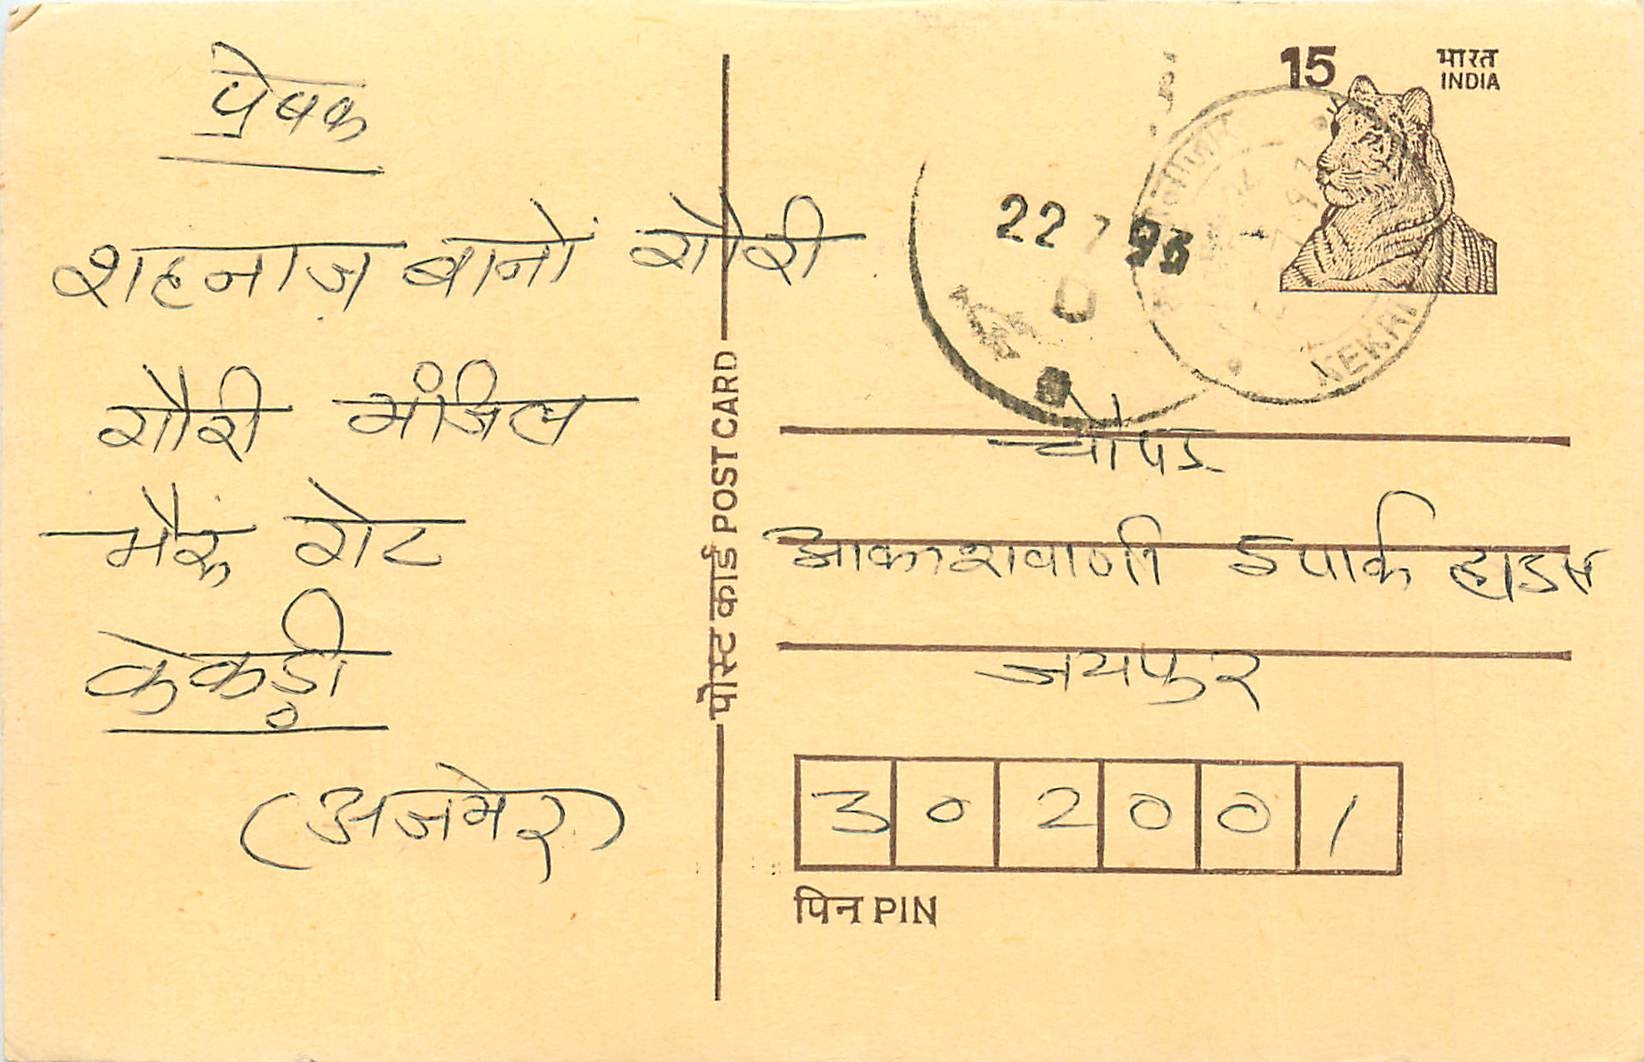 प्रेषक
शहनाज़ बानों गौरी
गौरी मंजिल
भैरूं गेट
केकड़ी
(अजमेर)
पोस्ट कार्ड POST CARD
15
भारत
INDIA
22 7 93
KEKRI
चौपड
आकाशवाणी 5 पार्क हाउस
जयपुर
302001
पिन PIN